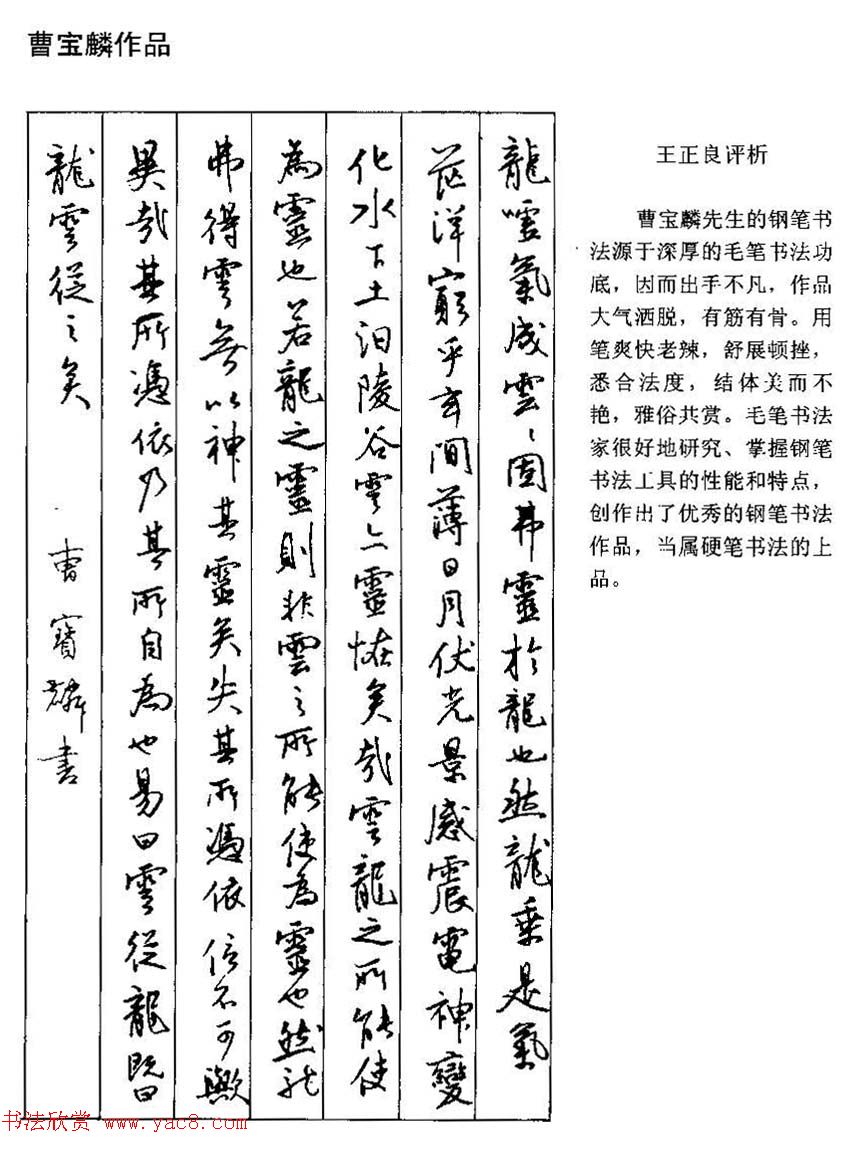 曹宝麟作品
龍噓氣成雲雲固弗靈於龍也然龍乘是氣
茫洋窮乎玄間薄日月伏光景感震電神變
化水下土汩陵谷雲亦靈怪矣哉雲龍之所能使
為靈也若龍之靈則非雲之所能使為靈也然龍
弗得雲無以神其靈矣失其所憑依信不可歟
異哉其所憑依乃其所自為也易曰雲從龍既曰
龍雲從之矣
曹寶麟書
王正良评析
曹宝麟先生的钢笔书
法源于深厚的毛笔书法功
底，因而出手不凡，作品
大气洒脱，有筋有骨。用
笔爽快老辣，舒展顿挫，
悉合法度，结体美而不
艳，雅俗共赏。毛笔书法
家很好地研究、掌握钢笔
书法工具的性能和特点，
创作出了优秀的钢笔书法
作品，当属硬笔书法的上
品。
书法欣赏 www.yac8.com